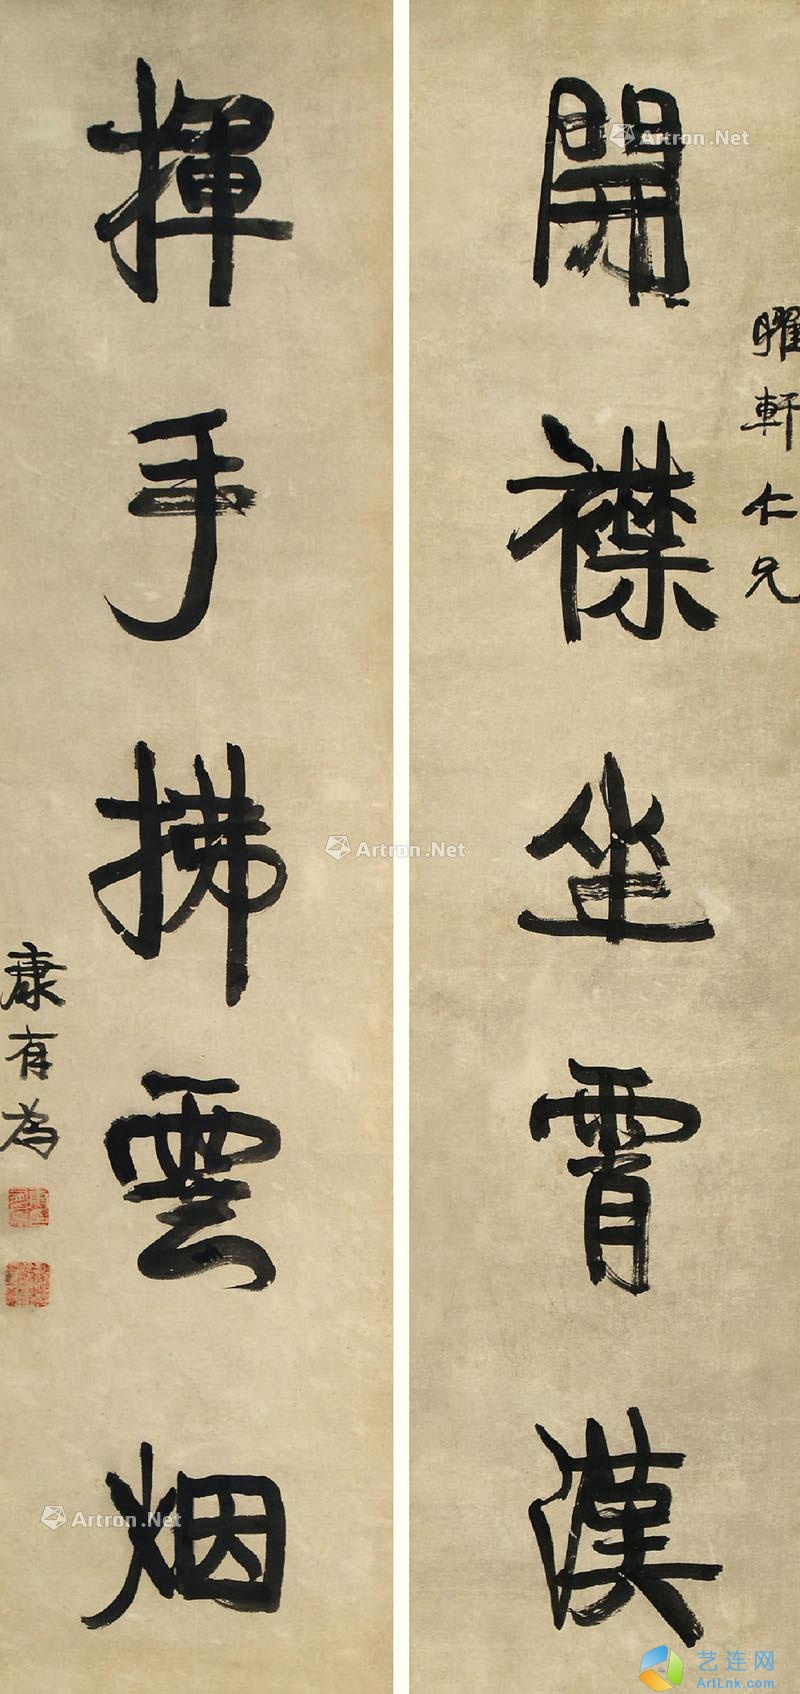 曜軒仁兄
開襟坐霄漢
揮手拂雲烟
康有為
Artron.Net
Artron.Net
Artron.Net
艺连网
ArtLnk.com